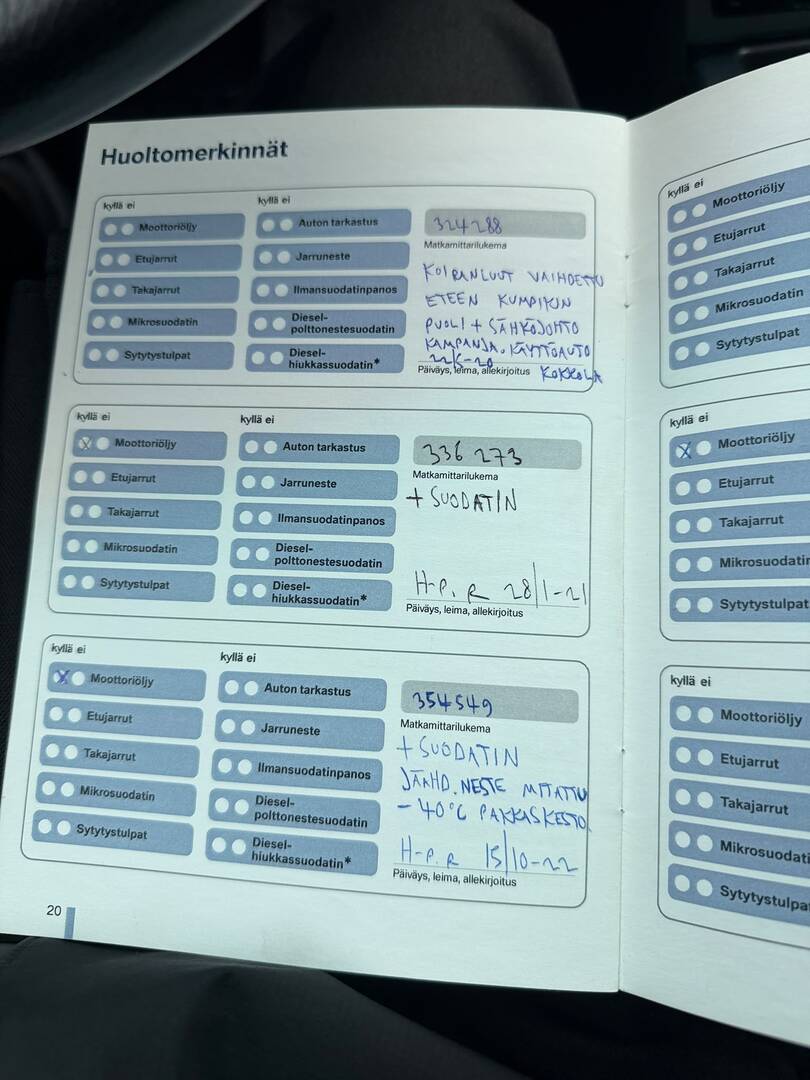 Huoltomerkinnät
kyllä ei
kyllä ei
Moottoriöljy
Auton tarkastus
324288
Matkamittarilukema
Etujarrut
Jarruneste
KOIRANLUUT VAIHDETTU
Takajarrut
Ilmansuodatinpanos
ETEEN KUMPIKIN
Mikrosuodatin
Diesel-
polttonestesuodatin
PUOLI + SÄHKÖJOHTO
KAMPANJA. KÄYTTÖAUTO
Sytytystulpat
Diesel-
hiukkassuodatin*
Päiväys, leima, allekirjoitus
KOKKOLA
kyllä ei
kyllä ei
Moottoriöljy
Auton tarkastus
336 273
Matkamittarilukema
Etujarrut
Jarruneste
+ SUODATIN
Takajarrut
Ilmansuodatinpanos
Mikrosuodatin
Diesel-
polttonestesuodatin
Sytytystulpat
Diesel-
hiukkassuodatin*
H-P. R 28/1-21
Päiväys, leima, allekirjoitus
kyllä ei
kyllä ei
Moottoriöljy
Auton tarkastus
354549
Matkamittarilukema
Etujarrut
Jarruneste
+ SUODATIN
Takajarrut
Ilmansuodatinpanos
JÄÄHD. NESTE MITATTU
Mikrosuodatin
Diesel-
polttonestesuodatin
- 40°C PAKKASKESTO
Sytytystulpat
Diesel-
hiukkassuodatin*
H-P. R 15/10-22
Päiväys, leima, allekirjoitus
20
kyllä ei
Moottoriöljy
Etujarrut
Takajarrut
Mikrosuodatin
Sytytystulpat
kyllä ei
Moottoriöljy
Etujarrut
Takajarrut
Mikrosuodatin
Sytytystulpat
kyllä ei
Moottoriöljy
Etujarrut
Takajarrut
Mikrosuodati
Sytytystulpa